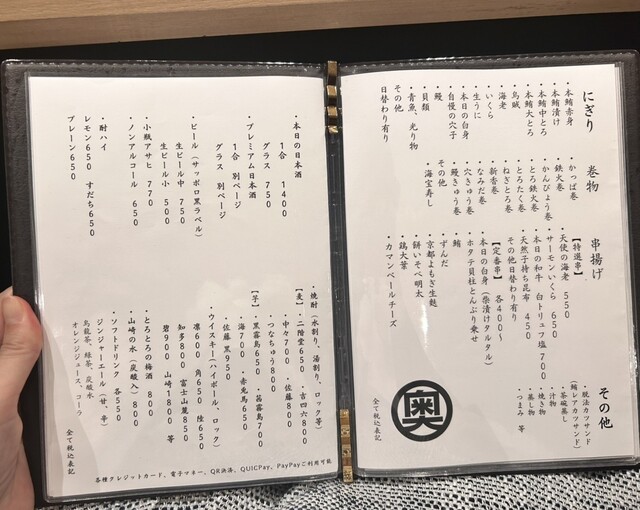 にぎり
・本鮪赤身
・本鮪漬け
・本鮪中とろ
・本鮪大とろ
・烏賊
・海老
・いくら
・生うに
・本日の白身
・自慢の穴子
・鰻
・貝類
・青魚、光り物
その他
日替わり有り
巻物
・かっぱ巻
・鉄火巻
・かんぴょう巻
・とろ鉄火巻
・とろたく巻
・ねぎとろ巻
・新香巻
・なみだ巻
・穴きゅう巻
・鰻きゅう巻
その他
・海宝寿し
串揚げ
【特選串】
・天使の海老 550
・サーモンいくら 650
・本日の和牛 白トリュフ塩 700
・天然子持ち昆布 450
その他日替わり有り
【定番串】 各400〜
・本日の白身（柴漬けタルタル）
・ホタテ貝柱とんぶり乗せ
・鮪
・ずんだ
・京都よもぎ生麩
・餅いそべ明太
・鶏大葉
・カマンベールチーズ
その他
・脱法カツサンド
（鮪レアカツサンド）
・茶碗蒸し
・汁物
・焼き物
・蒸し物
・つまみ 等
奥
全て税込表記
・本日の日本酒
1合 1400
グラス 750
・プレミアム日本酒
1合 別ページ
グラス 別ページ
・ビール（サッポロ黒ラベル）
生ビール中 750
生ビール小 500
・小瓶アサヒ 770
・ノンアルコール 650
・酎ハイ
レモン650 すだち650
プレーン650
・焼酎（水割り、湯割り、ロック等）
【麦】・二階堂650 ・吉四六800
・中々700 ・佐藤800
・つなちゅう800
【芋】・黒霧島650 ・茜霧島700
・海700 ・赤兎馬650
・佐藤黒950
・ウイスキー（ハイボール、ロック）
凛600 角650 陸650
知多800 富士山麓850
碧900 山崎1800 等
・とろとろの梅酒 800
・山崎の水（炭酸入） 800
・ソフトドリンク 各550
ジンジャーエール（甘、辛）
烏龍茶、緑茶、炭酸水
オレンジジュース、コーラ
全て税込表記
各種クレジットカード、電子マネー、QR決済、QUICPay、PayPayご利用可能